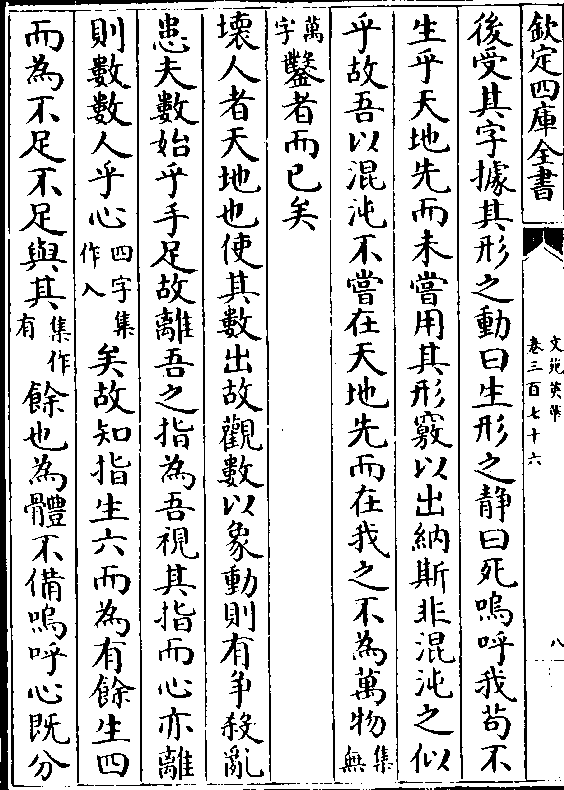 欽定四庫全書
文苑英華
卷三百七十六
八
後受其字據其形之動曰生形之静曰死嗚呼我苟不
生乎天地先而未嘗用其形竅以出納斯非混沌之似
乎故吾以混沌不嘗在天地先而在我之不為萬物集無
萬字鑿者而已矣
壞人者天地也使其數出故觀數以象動則有争殺亂
患夫數始乎手足故離吾之指為吾視其指而心亦離
則數數人乎心四字集作入矣故知指生六而為有餘生四
而為不足不足與其集作有餘也為體不備嗚呼心既分